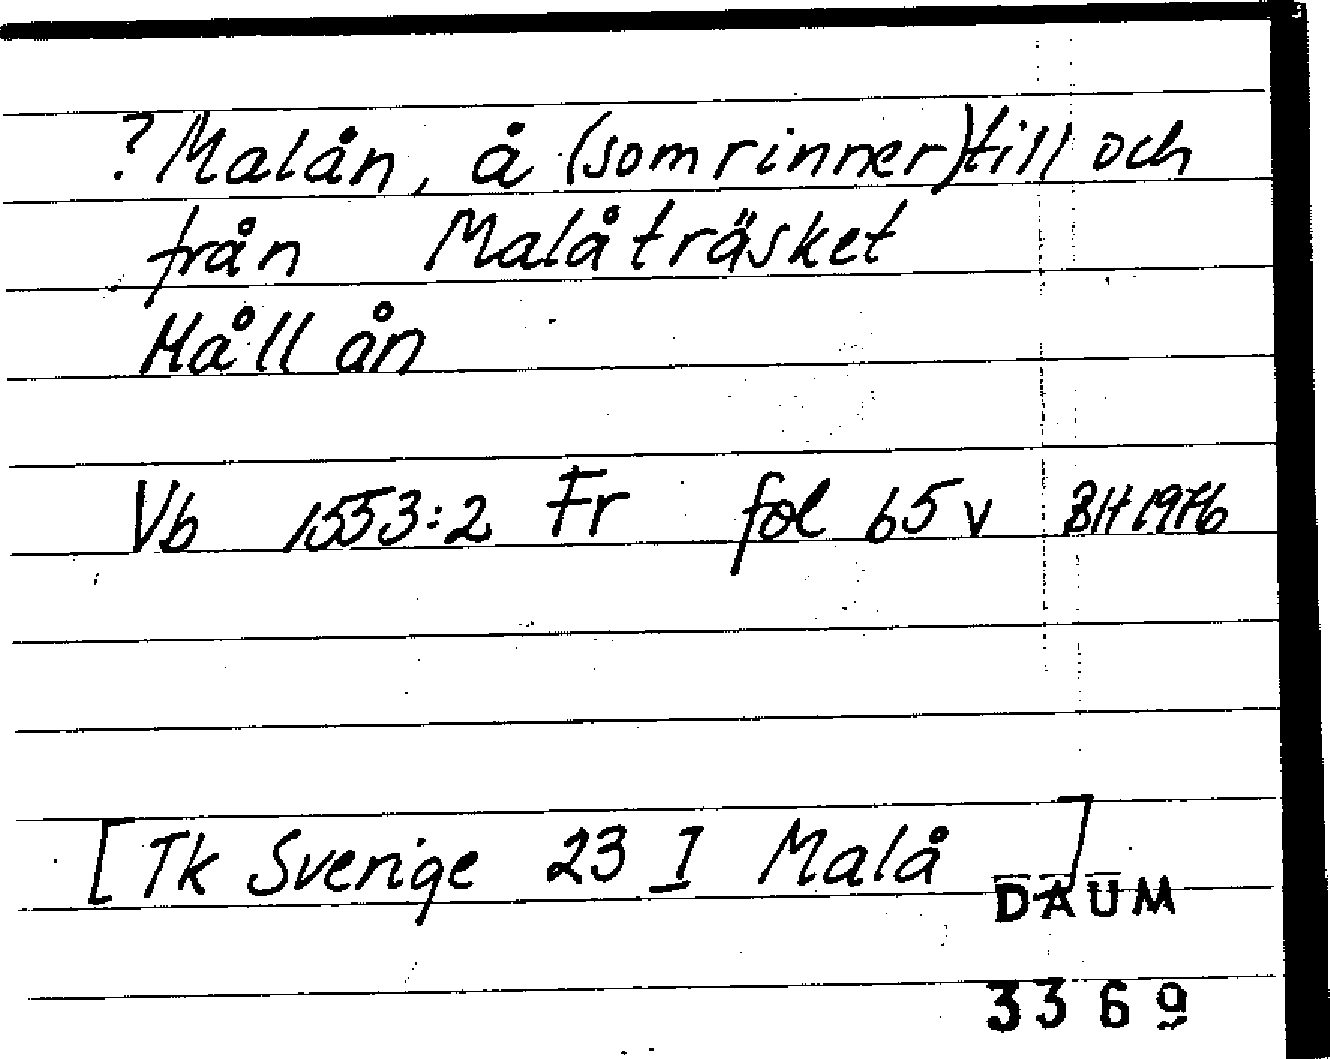 ?Malån, å (som rinner) till och
från Malåträsket
Måll ån
Vb 1553:2 Fr fol 65 v BH 1976
[Tk Sverige 23 I Malå]
DAUM
3369